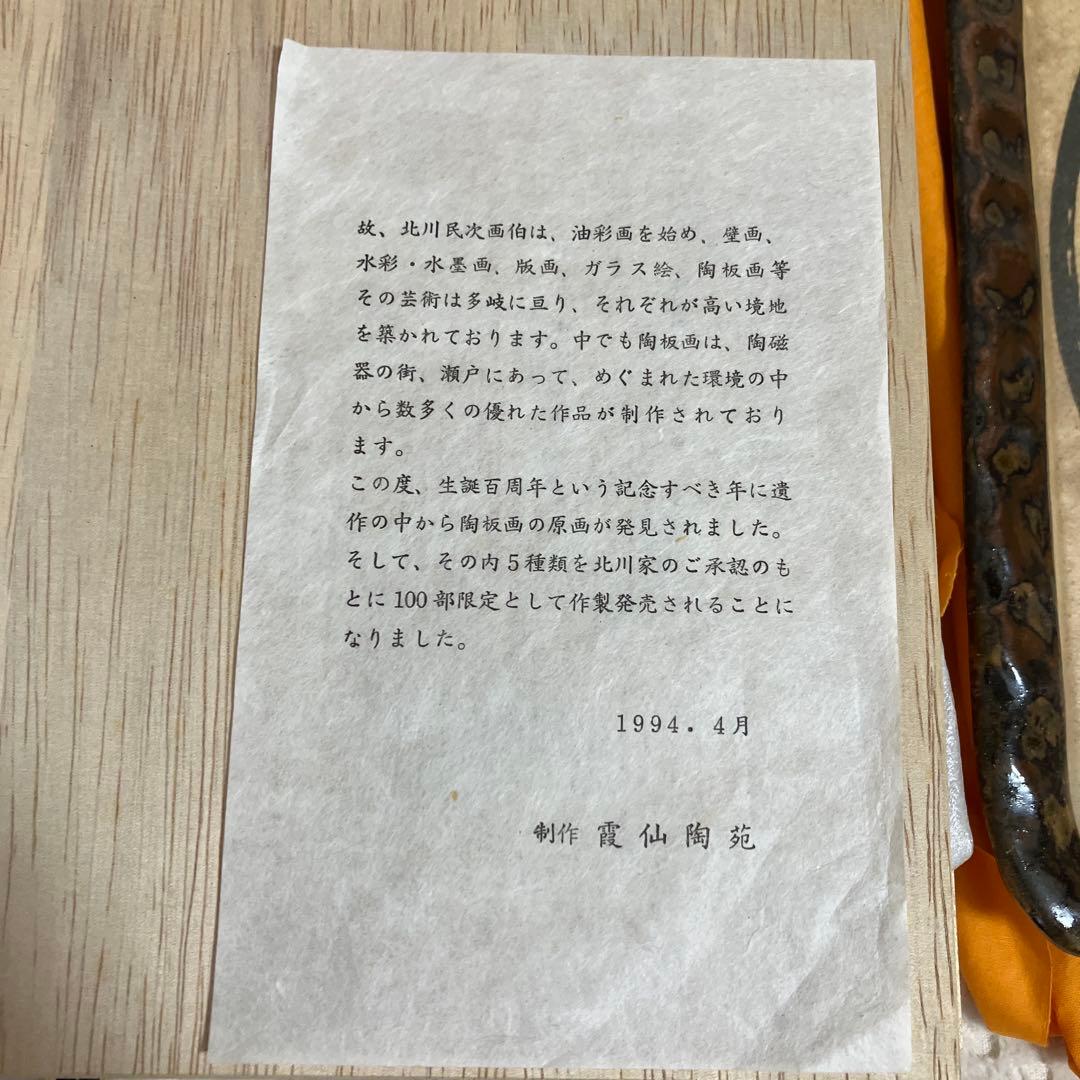 故、北川民次画伯は、油彩画を始め、壁画、
水彩・水墨画、版画、ガラス絵、陶板画等
その芸術は多岐に亘り、それぞれが高い境地
を築かれております。中でも陶板画は、陶磁
器の街、瀬戸にあって、めぐまれた環境の中
から数多くの優れた作品が制作されており
ます。
この度、生誕百周年という記念すべき年に遺
作の中から陶板画の原画が発見されました。
そして、その内5種類を北川家のご承認のも
とに100部限定として作製発売されることに
なりました。
1994．4月
制作 霞仙陶苑